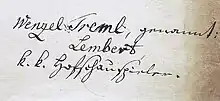 Wenzel Treml, genannt:
Lembert
k. k. Hofschauspieler.